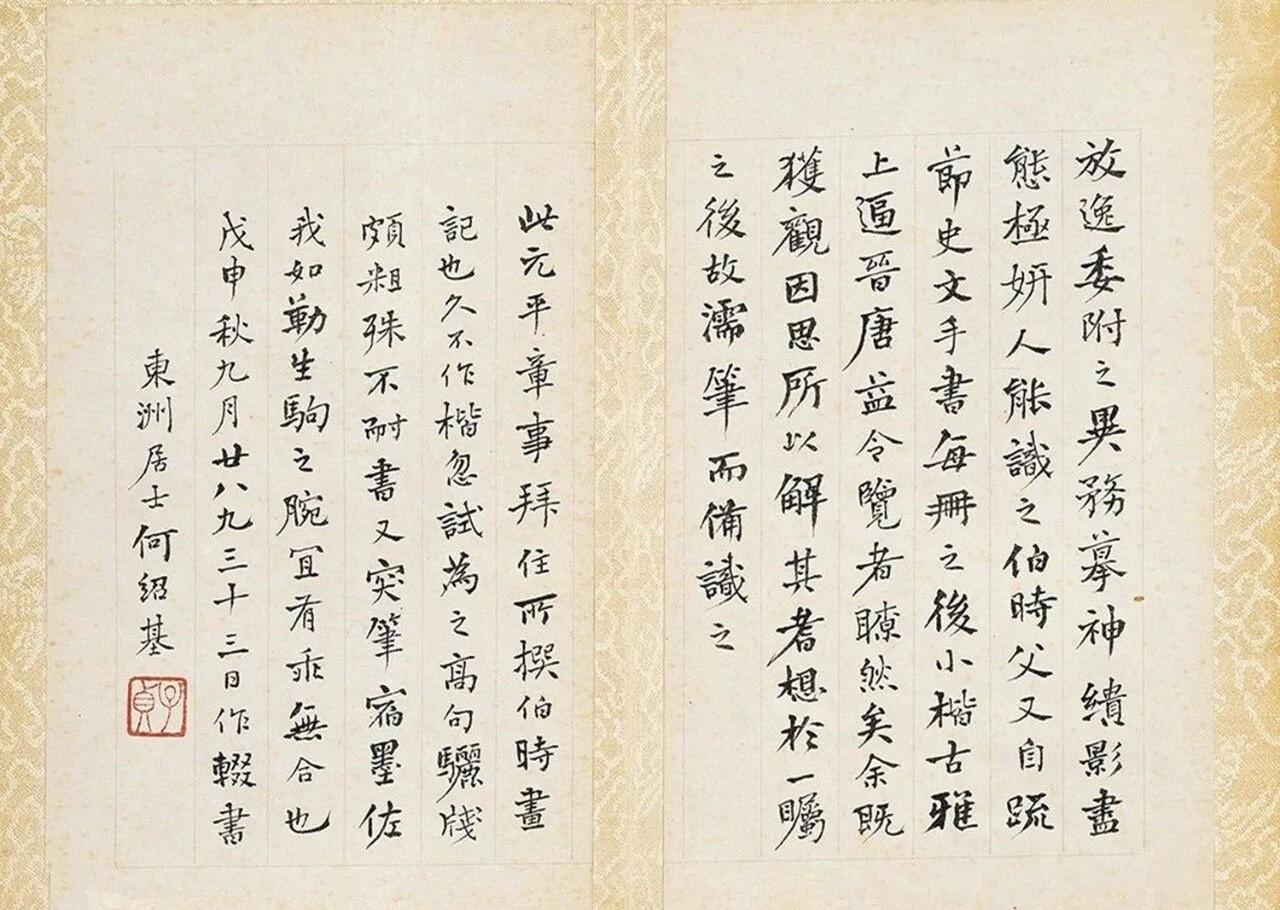 放逸委附之異務摹神繢影盡
態極妍人能識之伯時父又自疏
節史文手書每冊之後小楷古雅
上逼晉唐益令覽者瞭然矣余既
獲觀因思所以解其耆想於一矚
之後故濡筆而備識之
此元平章事拜住所撰伯時畫
記也久不作楷忽試為之高句驪牋
頗粗殊不耐書又突筆宿墨佐
我如勒生駒之腕宜有乖無合也
戊申秋九月廿八九三十三日作輟書
東洲居士何紹基
子貞